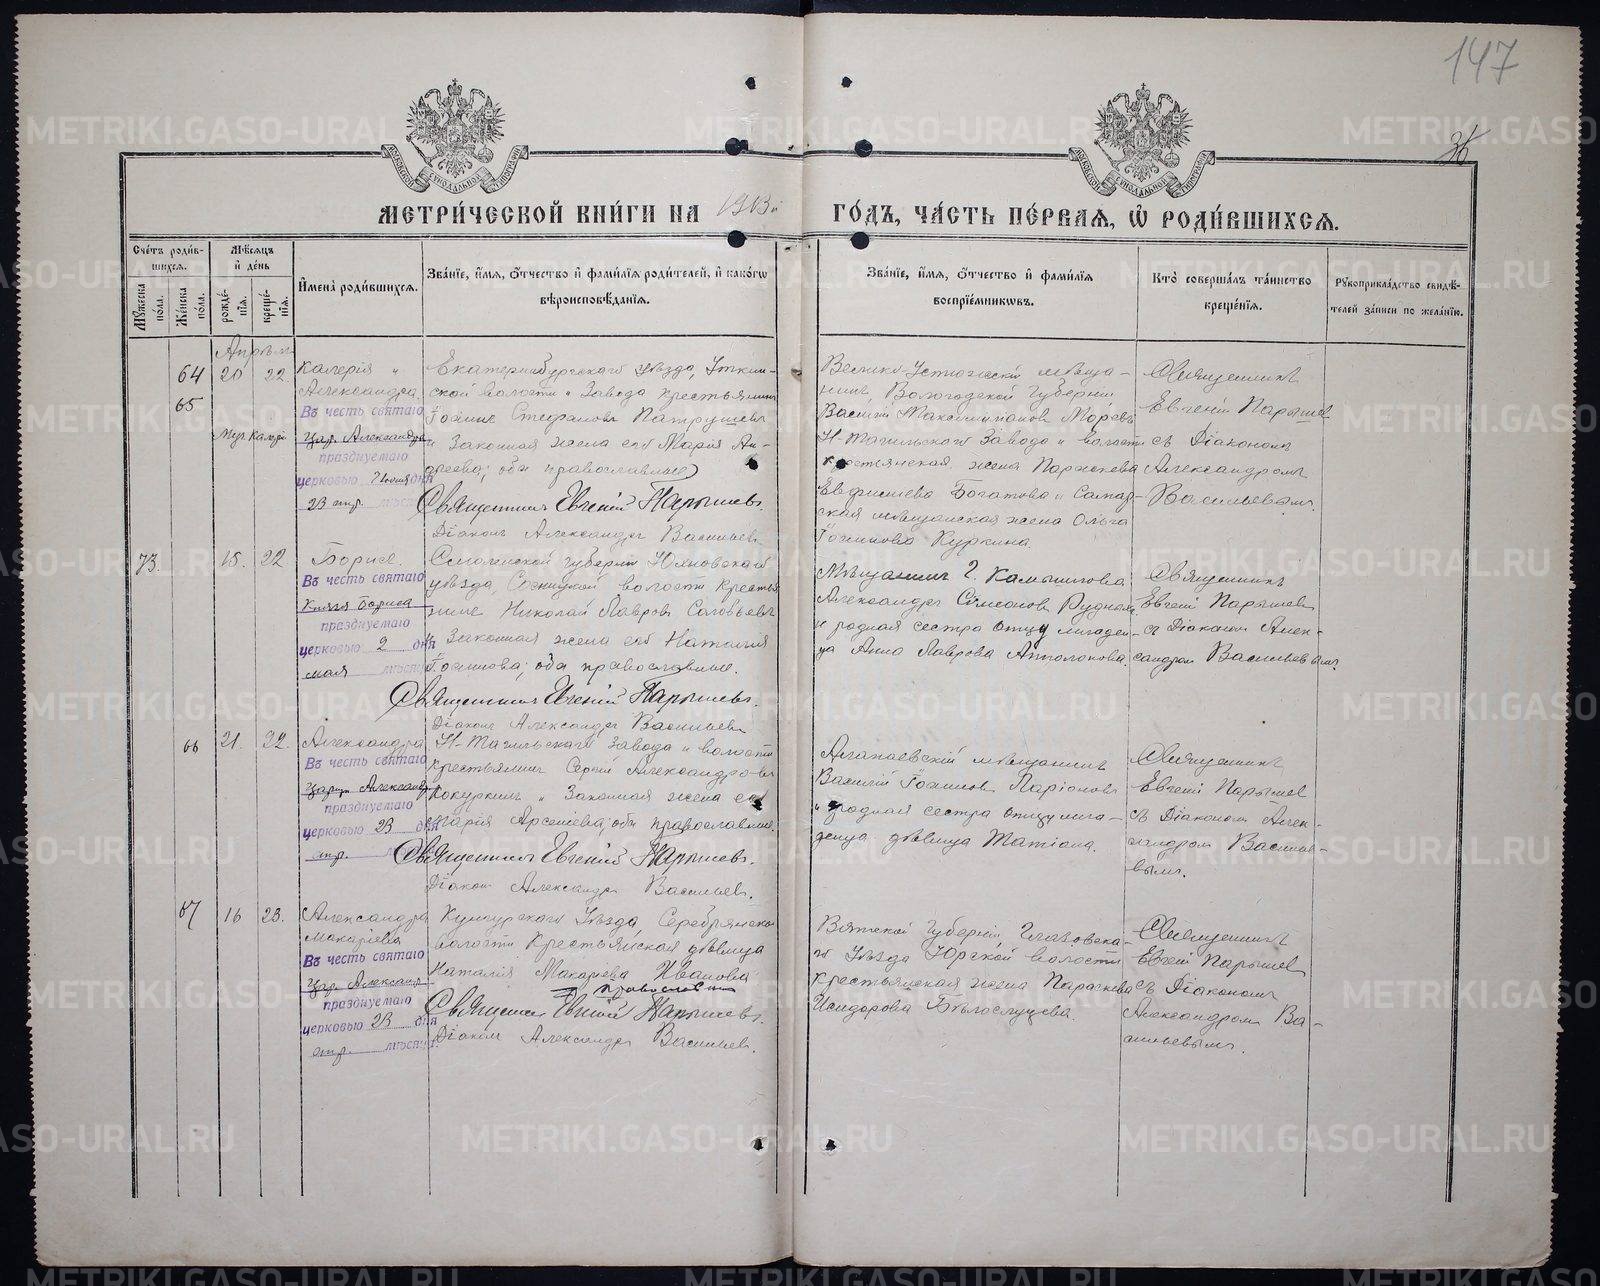 147
36
МЕТРИ́ЧЕСКОЙ КНИ́ГИ НА 1913й ГО́ДЪ, ЧА́СТЬ ПЕ́РВАЯ, Ѡ РОДИ́ВШИХСЯ.
Сче́тъ роди́вшихся.
Мѣ́сяцъ и де́нь
Мꙋ́жеска по́ла.
Же́нска по́ла.
рожде́нія.
креще́нія.
Имена̀ роди́вшихся.
Зва́ніе, и́мя, о́тчество и фами́лія роди́телей, и како́гѡ вѣроисповѣ́данія.
Зва́ніе, и́мя, о́тчество и фами́лія воспріе́мниковъ.
Кто̀ соверша́лъ та́инство креще́нія.
Рꙋкоприкла́дство свидѣ́телей за́писи по жела́нію.
Апрѣль
64
65
20
22.
Калерія и
Александра
Въ честь святаго
Муч. Калеріи
Цар. Александра
празднуемаго
церковью 7 Іюня дня
23 апр. мѣсяца
Екатеринбургскаго уѣзда, Уткин-
ской волости и Завода крестьянинъ
Іоаннъ Стефановъ Патрушевъ
и Законная жена его Марія Ан-
дреева; оба православные
Священникъ Евгеній Парышевъ.
Діаконъ Александръ Васильевъ
Велико-Устюжскій мѣща-
нинъ, Вологодской Губерніи
Василій Максимиліановъ Моревъ
Н-Тагильскаго Завода и волости
крестьянская жена Параскева
Евфимиева Богатова и Самар-
ская мѣщанская жена Ольга
Іоаннова Куркина.
Священникъ
Евгеній Парышевъ
съ Діакономъ
Александромъ
Васильевымъ.
73.
15.
22
Борисъ.
Въ честь святаго
Князя Бориса
празднуемаго
церковью 2 дня
мая мѣсяца
Смоленской губерніи Юхновскаго
уѣзда, волости Кресть-
нинъ Николай Лавровъ Соловьевъ
и Законная жена его Наталія
Іоаннова; оба православные.
Священникъ Евгеній Парышевъ.
Діаконъ Александръ Васильевъ
Мѣщанинъ г. Камышлова
Александръ Симеоновъ
и родная сестра отцу младен-
ца Анна Лаврова
Священникъ
Евгеній Парышевъ
съ Діаконом Алек-
сандром Васильевымъ.
66
21.
22.
Александра
Въ честь святаго
Царицы Александры
празднуемаго
церковью 23 дня
апр. мѣсяца
Н-Тагильскаго Завода и волости
крестьянинъ Сергій Александровъ
Кокуркинъ и Законная жена его
Марія Арсеніева; оба православные.
Священникъ Евгеній Парышевъ.
Діаконъ Александръ Васильевъ.
Алапаевскій мѣщанинъ
Василій Іоанновъ Ларіоновъ
и родная сестра отцу мла-
денца дѣвица Татіана.
Священникъ
Евгеній Парышевъ
съ Діаконом Алек-
сандром Василье-
вымъ.
67
16
23.
Александра
Макаріева
Въ честь святаго
Цар. Александр
празднуемаго
церковью 23 дня
апр. мѣсяца
Кунгурскаго Уѣзда, Серебрянской
волости Крестьянская дѣвица
Наталія Макаріева Иванова
православная
Священникъ Евгеній Парышевъ.
Діаконъ Александръ Васильевъ.
Вятской Губерніи, Глазовска-
го Уѣзда Юрской волости
крестьянская жена Параскева
Исидорова Бѣлослудцева.
Священникъ
Евгеній Парышевъ
съ Діакономъ
Александром Ва-
сильевымъ.